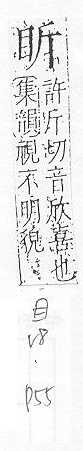 盺
許斤切音欣喜也
集韻視不明貌
目
V8.
P55